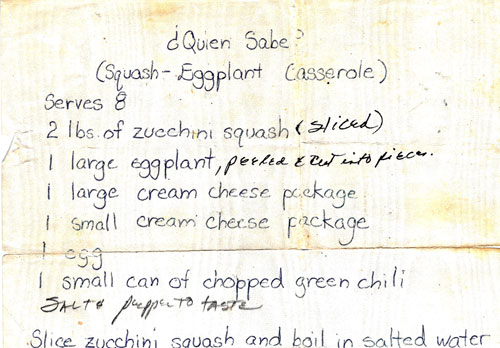 ¿Quien Sabe?
(Squash-Eggplant Casserole)
Serves 8
2 lbs. of zucchini squash (sliced)
1 large eggplant, peeled & cut into pieces.
1 large cream cheese package
1 small cream cheese package
1 egg
1 small can of chopped green chili
SALT & pepper TO TASTE
Slice zucchini squash and boil in salted water